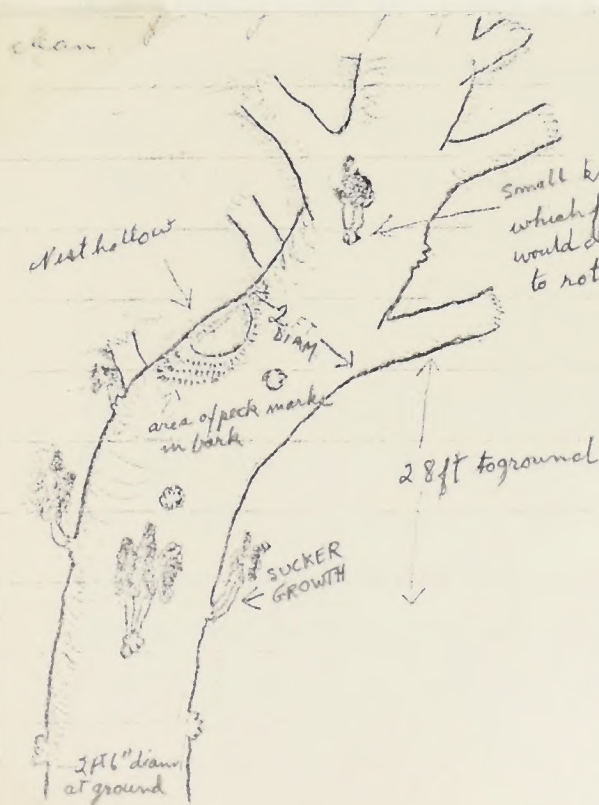 clean
Nest hollow
Small
which
would
to rot
2 FT
DIAM
area of peck marks
in bark
28ft to ground
SUCKER
GROWTH
2ft 6" diam
at ground